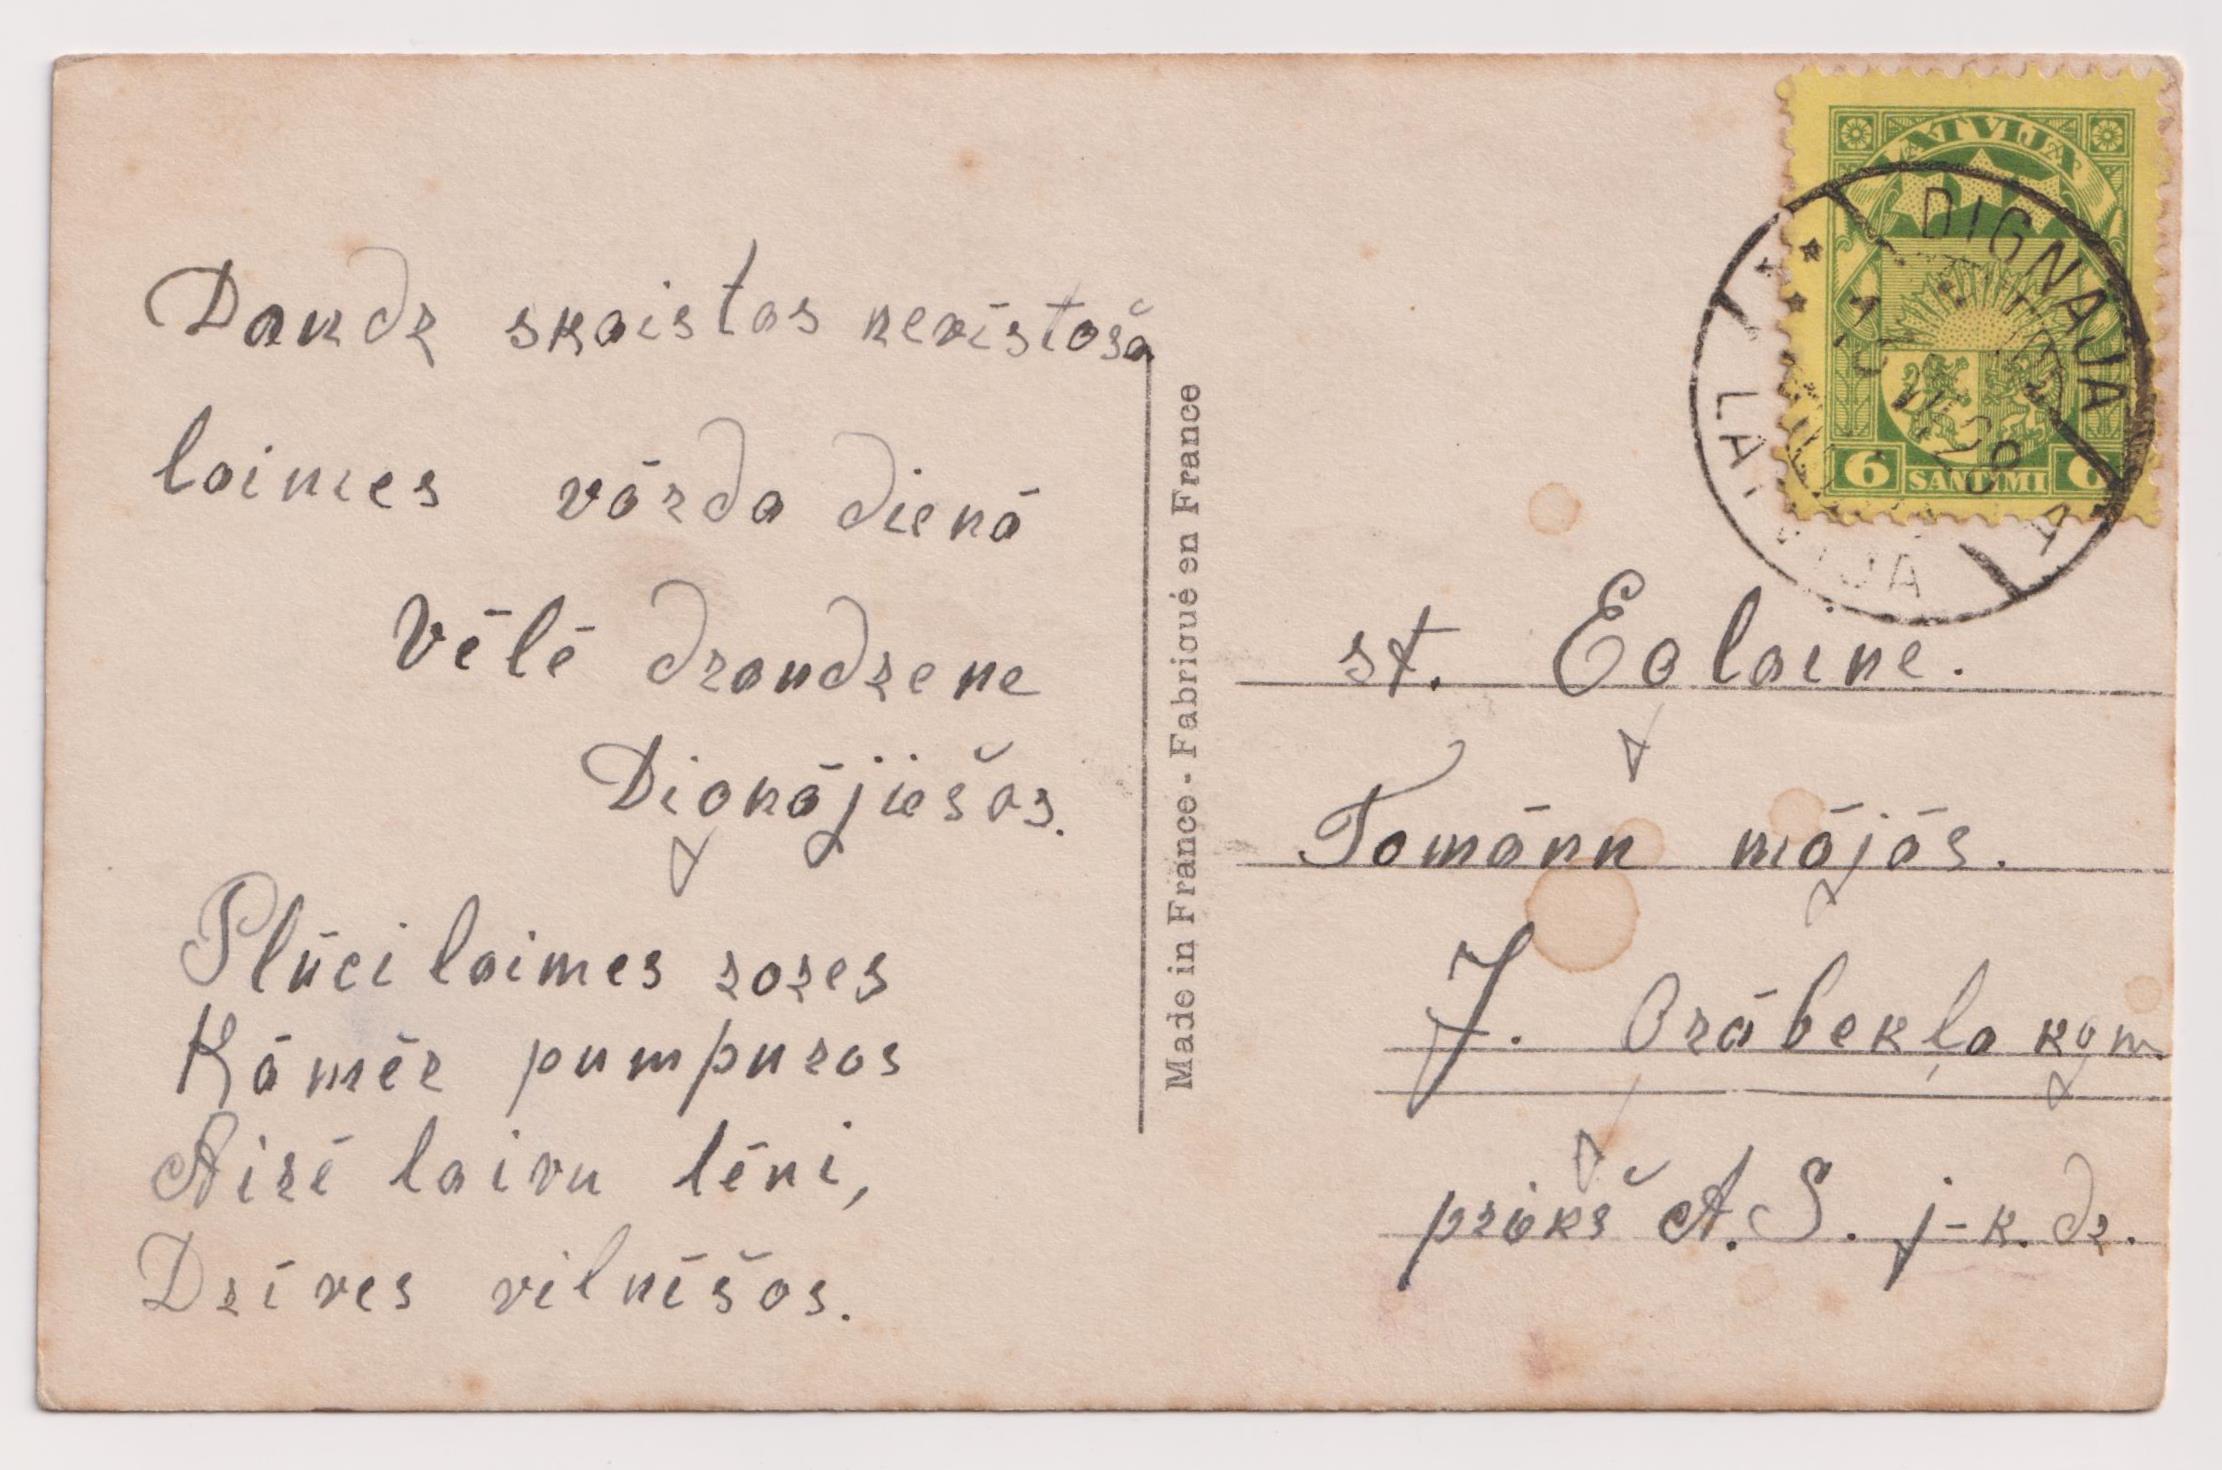 Daudz skaistas nevīstoša
laimes vārda dienā
Vēlē draudzene
Dignājiešas.
Plūci laimes rozes
Kāmēr pumpuros
Airē laivu lēni,
Dzīves vilnīšos.
Made in France - Fabriqué en France
LATVIJA
6 SANTIMI 6
DIGNAJA
LATVIJA
st. Eglaine.
Tomānu mājās.
J. Grābekļa kgm
priekš A. S. j-k. dz.